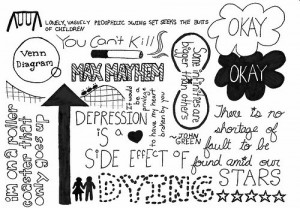 LONELY, VAGUELY PEDOPHILIC SWING SET SEEKS THE BUTTS
OF CHILDREN
Venn
Diagram
You Can't Kill
MAX MAYHEM
Some infinities are
bigger than others
OKAY
OKAY
i'm on a roller
coaster that
only goes up
It would
be a
privilege
to have my heart
broken by you
DEPRESSION
IS A
SIDE EFFECT OF
DYING
-JOHN
GREEN
There is no
shortage of
fault to be
found amid our
STARS